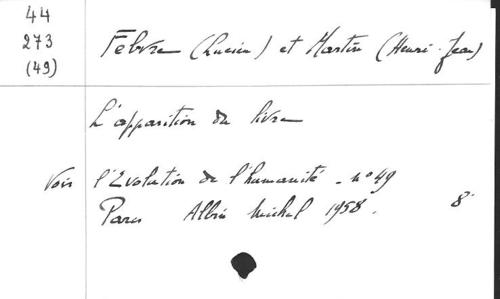 44
273
(49)
Febvre (Lucien) et Martin (Henri-Jean)
L'apparition du livre
Voir l'Evolution de l'humanité - n° 49
Paris Albin Michel 1958. 8°